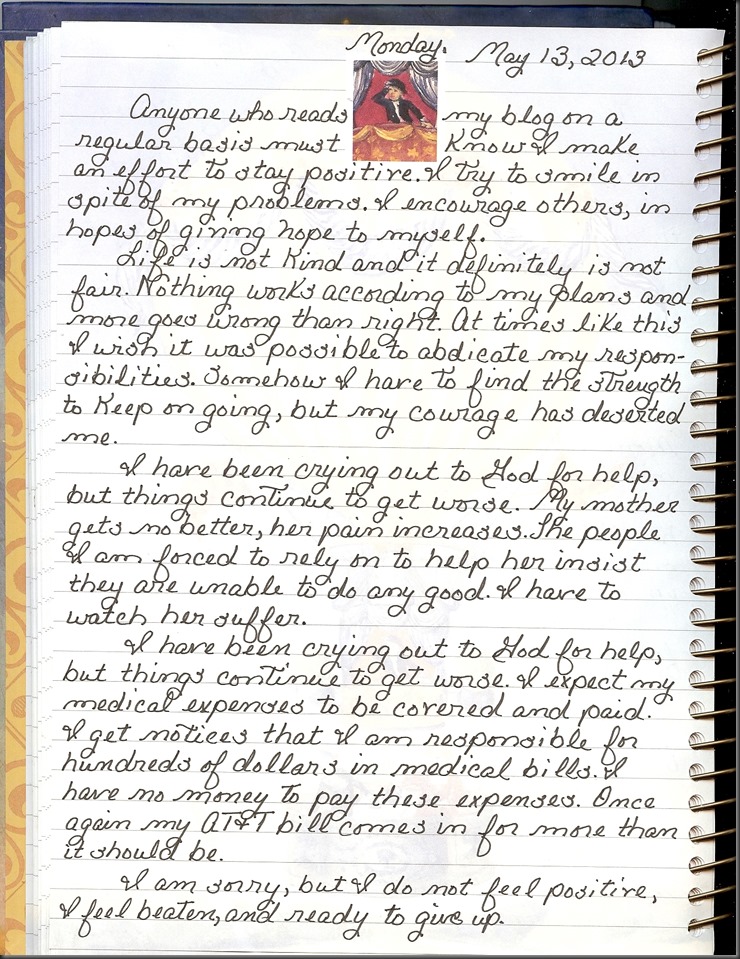 Monday. May 13, 2013
Anyone who reads my blog on a
regular basis must Know I make
an effort to stay positive. I try to smile in
spite of my problems. I encourage others, in
hopes of giving hope to myself.
Life is not Kind and it definitely is not
fair. Nothing works according to my plans and
more goes wrong than right. At times like this
I wish it was possible to abdicate my respon-
sibilities. Somehow I have to find the strength
to Keep on going, but my courage has deserted
me.
I have been crying out to God for help,
but things continue to get worse. My mother
gets no better, her pain increases. The people
I am forced to rely on to help her insist
they are unable to do any good. I have to
watch her suffer.
I have been crying out to God for help,
but things continue to get worse. I expect my
medical expenses to be covered and paid.
I get notices that I am responsible for
hundreds of dollars in medical bills. I
have no money to pay these expenses. Once
again my AT&T bill comes in for more than
it should be.
I am sorry, but I do not feel positive,
I feel beaten, and ready to give up.